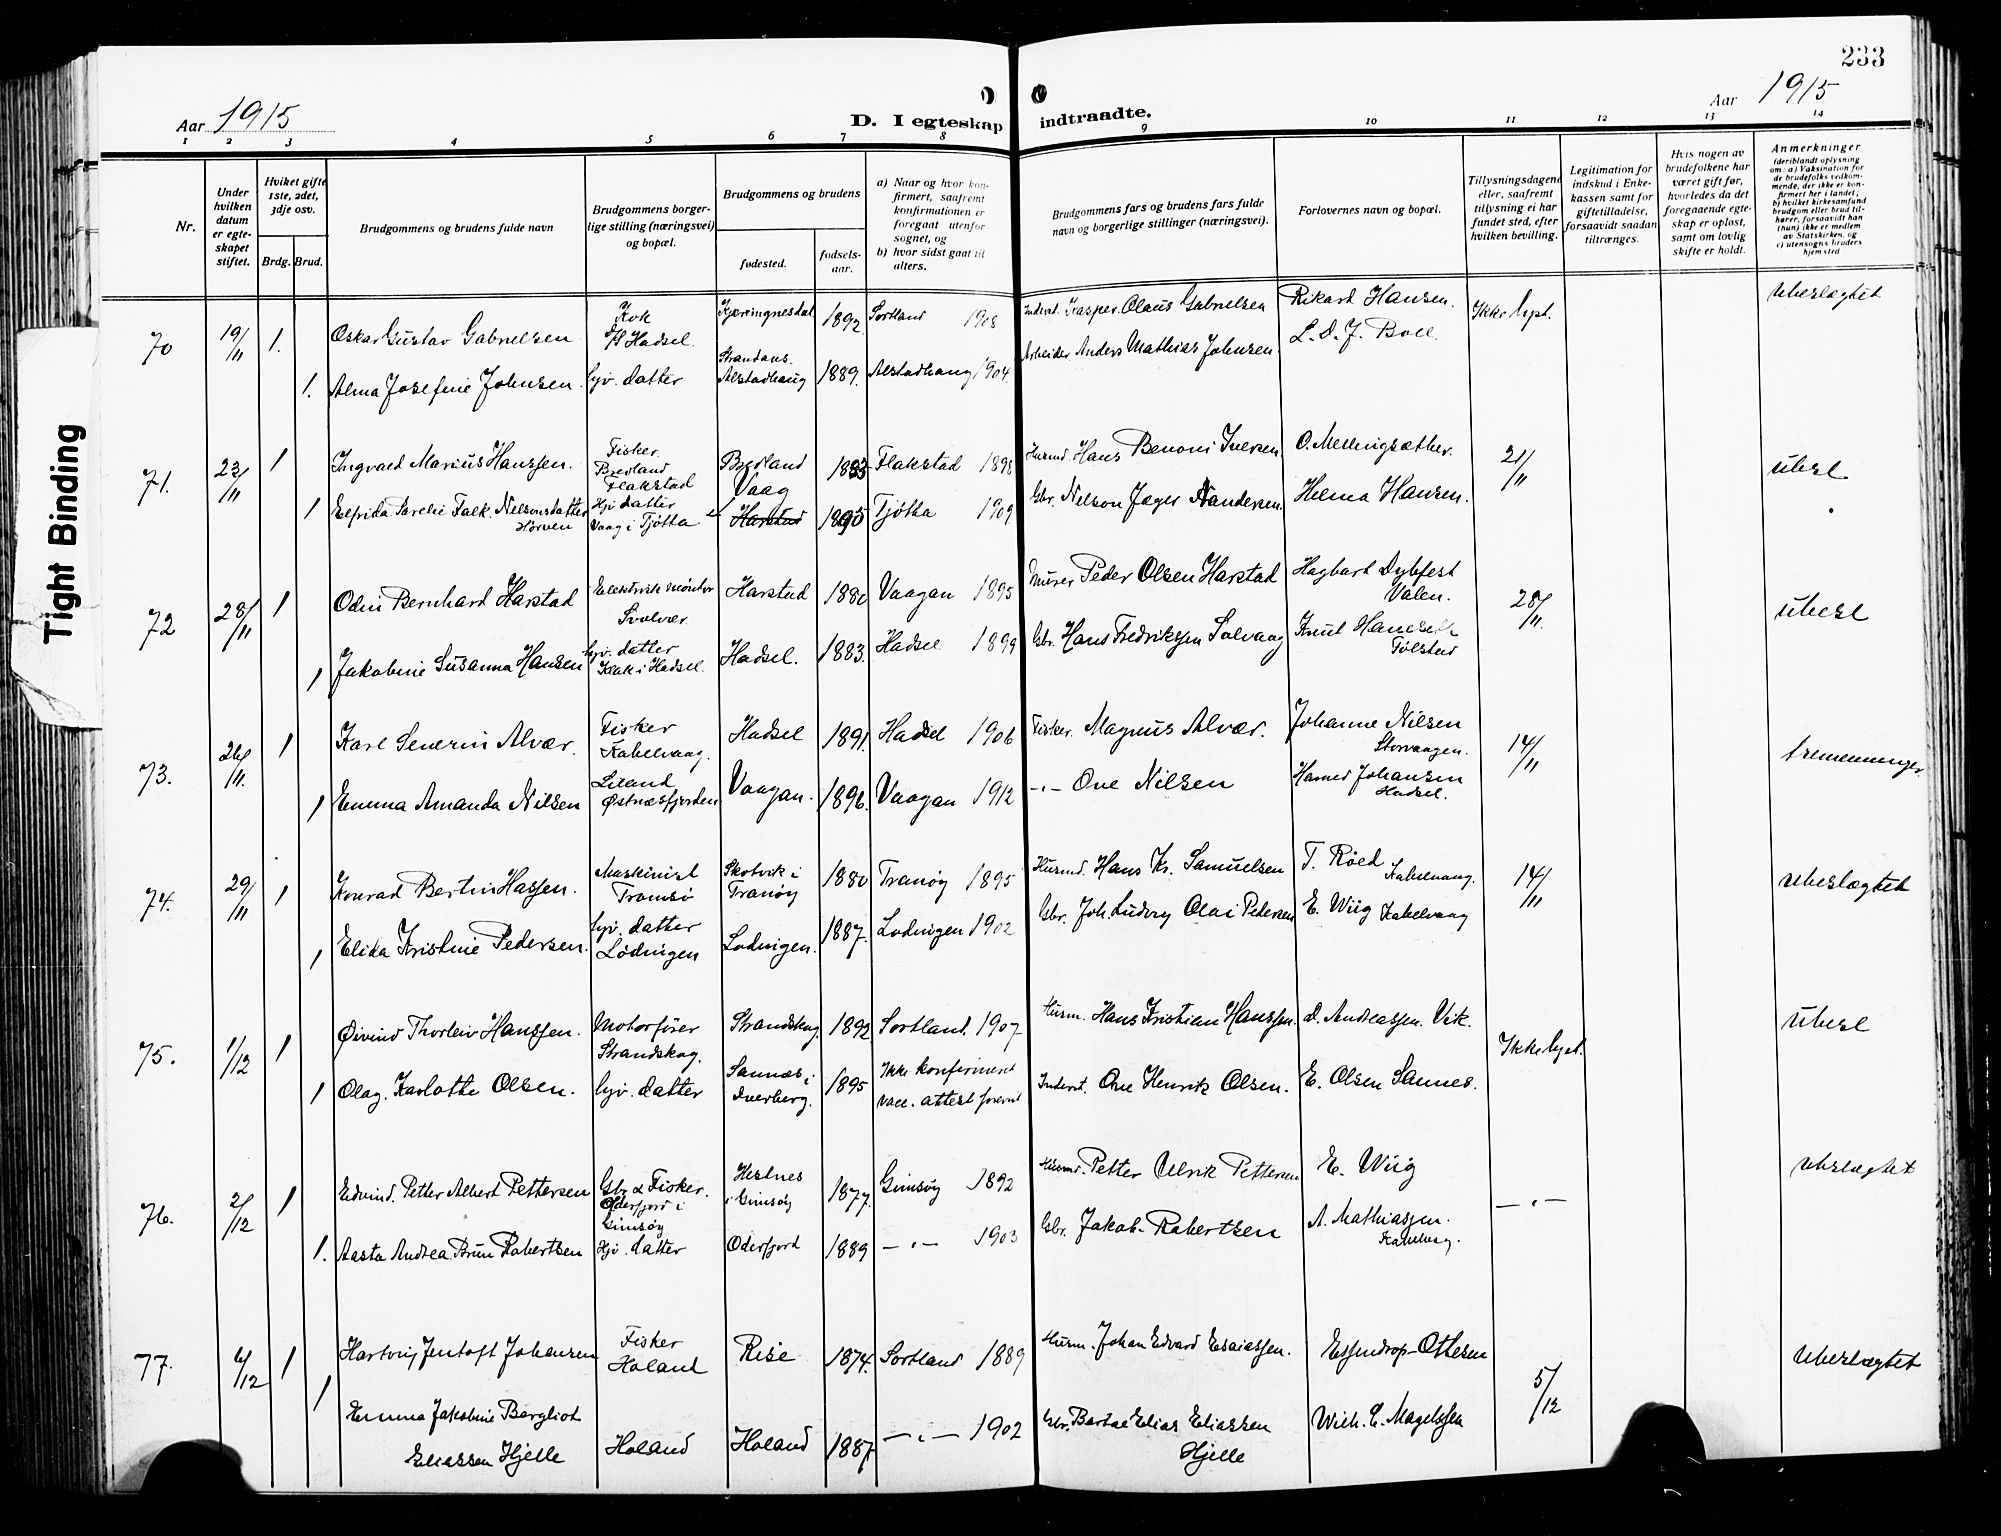 233
Aar 1915
D. I egteskap indtraadte.
Aar 1915
1 2 3 4 5 6 7 8 9 10 11 12 13 14
Nr.
Under hvilken datum er egteskapet stiftet.
Hvilket gifte 1ste, 2det, 3dje osv.
Brdg. Brud.
Brudgommens og brudens fulde navn
Brudgommens borgerlige stilling (næringsvei) og bopæl.
Brudgommens og brudens
fødested.
fødselsaar.
a) Naar og hvor konfirmert, saafremt konfirmationen er foregaat utenfor sognet, og
b) hvor sidst gaat til alters.
Brudgommens fars og brudens fars fulde navn og borgerlige stillinger (næringsvei).
Forlovernes navn og bopæl.
Tillysningsdagene eller, saafremt tillysning ei har fundet sted, efter hvilken bevilling.
Legitimation for indskud i Enkekassen samt for giftetilladelse, forsaavidt saadan tiltrænges.
Hvis nogen av brudefolkene har været gift før, hvorledes da det foregaaende egteskap er opløst, samt om lovlig skifte er holdt.
Anmerkninger
(deriblandt oplysning om: a) Vaksination for de brudefolks vedkommende, der ikke er konfirmert her i landet; b) hvilket kirkesamfund brudgom eller brud tilhører, forsaavidt han (hun) ikke er medlem av Statskirken, og c) utensogns bruders hjemsted
70 19/11 1. Oskar Gustav Gabrielsen Kok D/S Hadsel. Kjerringnesdal 1892 Sortland 1908 Inderst. Kasper Olaus Gabrielsen Rikard Hansen. Ikke lyst. Ubeslægtet
1. Alma Josefine Johnsen. Hjv. datter Strandans. Alstadhaug 1889. Alstadhaug 1904. Arbeider Anders Mathias Johnsen. L. D. J. Boll.
71. 23/11 1 Ingvald Marius Hanssen. Fisker. Bredland Flakstad Bredland 1883 Flakstad 1898 Husmd. Hans Benoni Iversen O. Mellingsæther. 21/11 ubesl
1 Elfrida Parelie Falk Nelsonsdatter Horven Hjv datter Vaag i Tjøtta Vaag Harstad 1895 Tjøtta 1909 Gbr. Nelson Jæger Nandersen. Helma Hansen.
72 28/11 1 Odin Bernhard Harstad Elektrisk montør Svolvær Harstad 1880 Vaagan 1895 Murer Peder Olsen Harstad Hagbart Dybfest Valen. 28/11. Ubesl
1 Jakobine Susanna Hansen Hjv. datter Flak i Hadsel. Hadsel. 1883. Hadsel 1899 Gbr. Hans Fredriksen Solvaag Knut Hanseth Tølstad
73. 26/11. 1 Karl Severin Alvær. Fisker Kabelvaag. Hadsel 1891. Hadsel 1906 Fisker. Magnus Alvær. Johanne Nilsen Storvaagen. 14/11 tremenninger
1 Emma Amanda Nilsen Liland Østnesfjorden Vaagan. 1896. Vaagan 1912 -"- Ove Nilsen Harmed Johansen Hadsel.
74. 29/11 1 Konrad Bertin Hassen. Maskinist Tromsø Skotvik i Tranøy 1880 Tranøy 1895 Husmd. Hans Kr. Samuelsen T. Røed Kabelvaag. 14/11 Ubeslægtet
1 Elida Kristine Pedersen. Hjv. datter Lødingen Lødingen. 1887. Lodingen 1902 Gbr. Joh. Ludvig Olai Pedersen E. Wiig Kabelvaag
75. 1/12 1 Øivind Thorleiv Hanssen. Motorfører Strandskog. Strandskog 1892 Sortland. 1907 Husm. Hans Kristian Hanssen. d. Andreassen. Vik. Ikke lyst. Ubesl
1 Olag. Karlotte Olsen. Hjv. datter Sannæs i Dverberg. 1895 Ikke konfirmert Vacc. attest forevist Inderst. Ove Henrik Olsen. E. Olsen Sannes.
76. 2/12 1 Edvind. Petter Albert Pettersen Gbr & Fisker. Oderfjord i Gimsøy Hestnes i Gimsøy 1877. Gimsøy 1892 Husmd. Petter Ulrik Pettersen E. Wiig -"- Ubeslægtet
1. Aasta Andrea Brun Robertsen Hjv. datter Oderfjord 1889 -"- 1903 Gbr. Jakob Robertsen A. Mathiassen. Kabelvag.
77. 6/12 1 Hartvig Jentoft Johansen Fisker Holand Rise 1874. Sortland 1889 Husm. Johan Edvard Esaiassen. Essendrop-Ottesen 5/12 Ubeslægtet
1 Emma Jakobine Bergliot Eliassen Hjelle Holand Holand 1887. -"- 1902 Gbr. Bertal Elias Eliassen Hjelle Wilh. C. Magelssen
Tight Binding